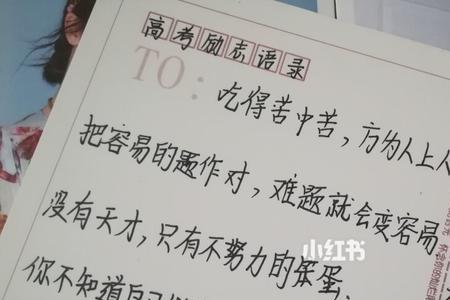 高考励志语录
TO:
吃得苦中苦，方为人上人
把容易的题作对，难题就会变容易
没有天才，只有不努力的笨蛋
你不知道自己
小红书